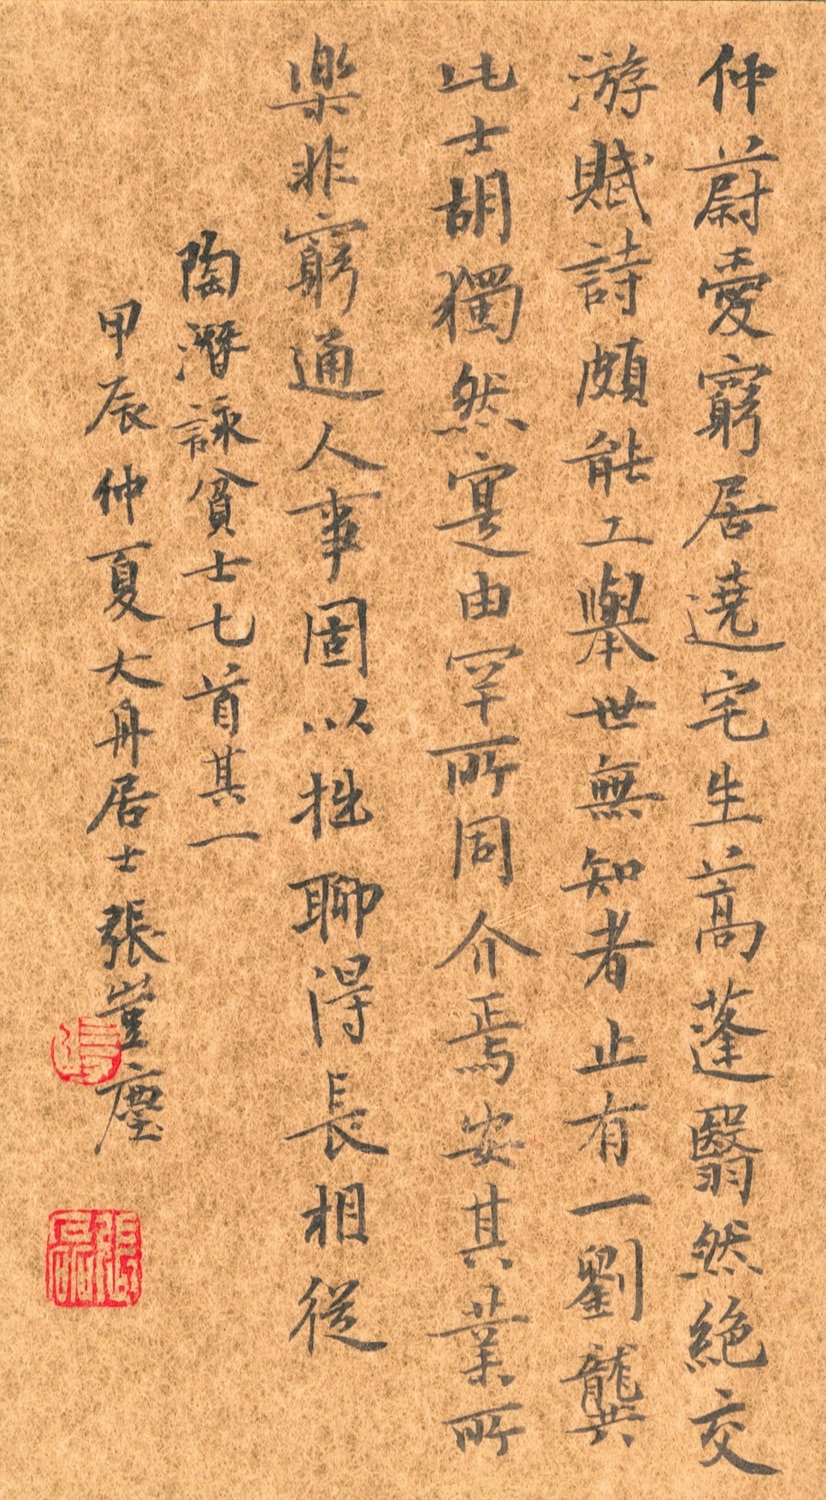 仲蔚愛窮居遶宅生蒿蓬翳然絶交
游賦詩頗能工舉世無知者止有一劉龔
此士胡獨然寔由罕所同介焉安其業所
樂非窮通人事固以拙聊得長相從
陶潛詠貧士七首其一
甲辰仲夏大舟居士張豈塵